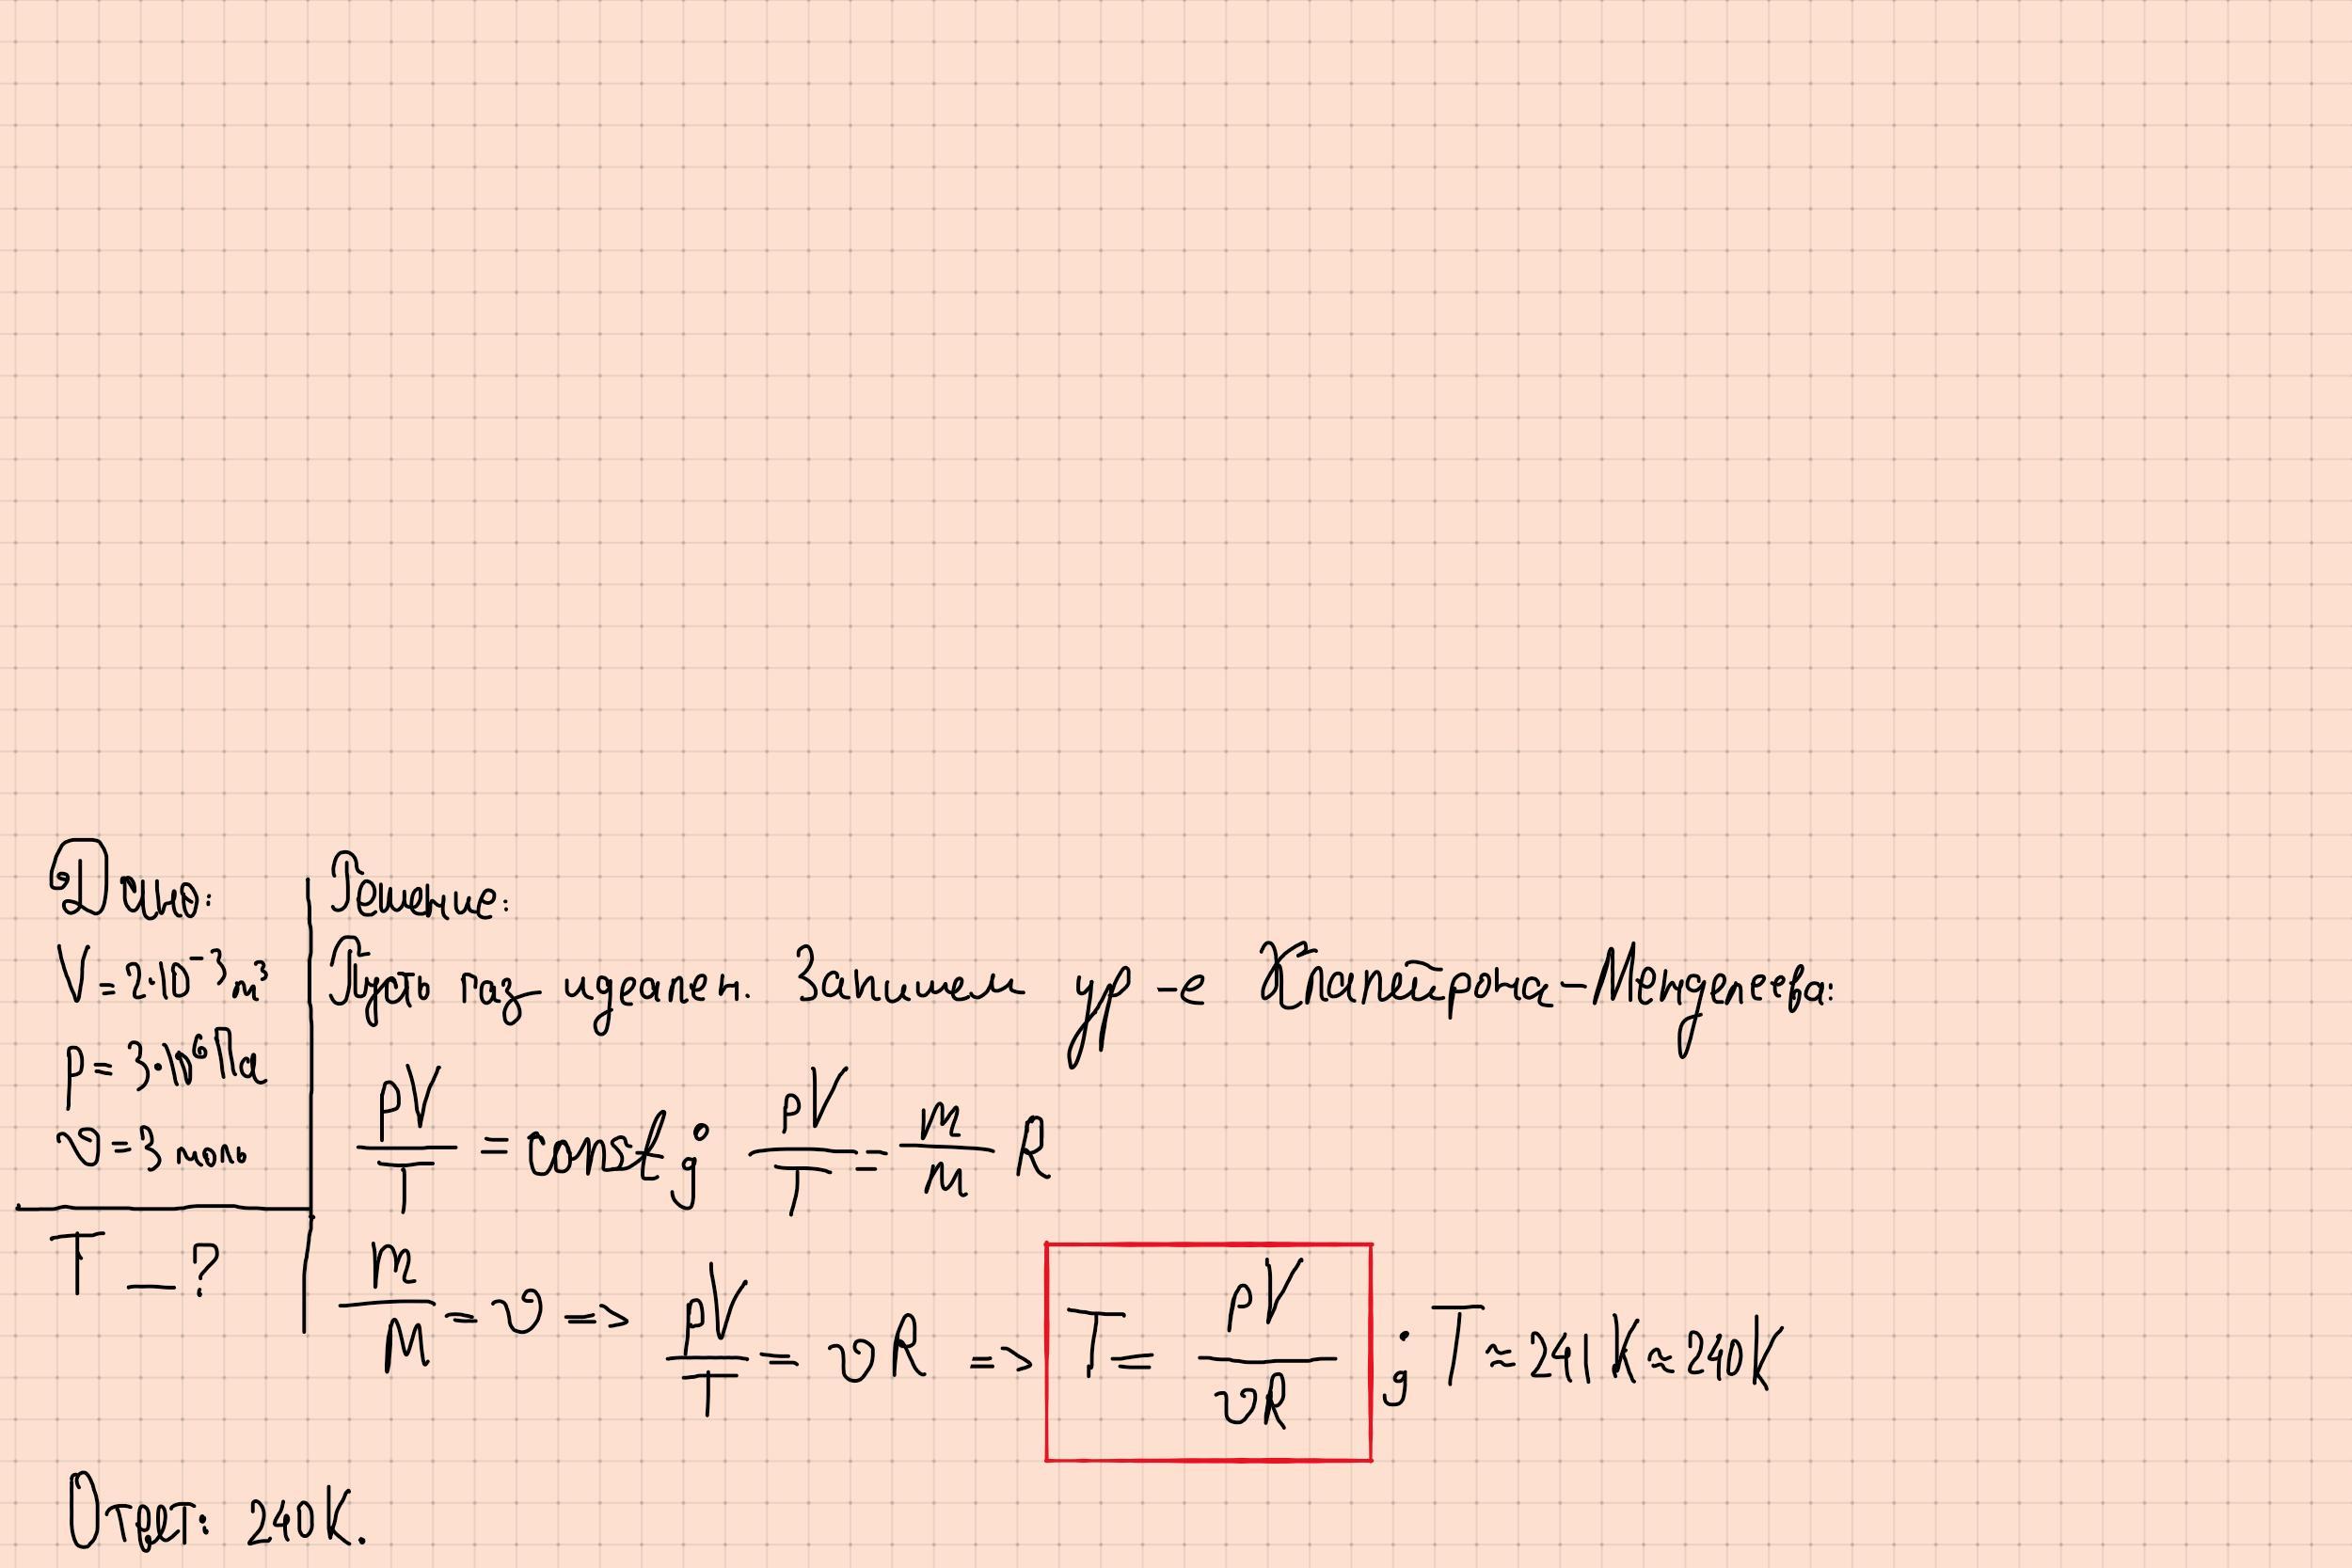 Дано:
V = 2·10⁻³ м³
p = 3·10⁶ Па
ν = 3 моль
T — ?
Решение:
Пусть газ идеален. Запишем ур-е Клапейрона-Менделеева:
pV/T = const; pV/T = m/M R
m/M = ν => pV/T = νR => T = pV/νR ; T ≈ 241 K ≈ 240 K
Ответ: 240 K.